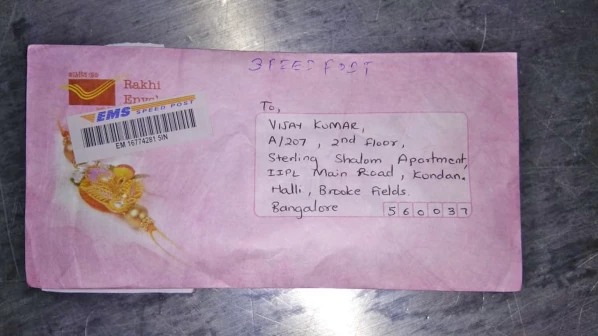 SPEED POST
Rakhi
EMS SPEED POST
EM 16774281 5IN
To,
VIJAY KUMAR,
A/207, 2nd floor,
Sterling Shalom Apartment,
IIPL Main Road, Kundan.
Halli, Brooke Fields.
Bangalore 560037